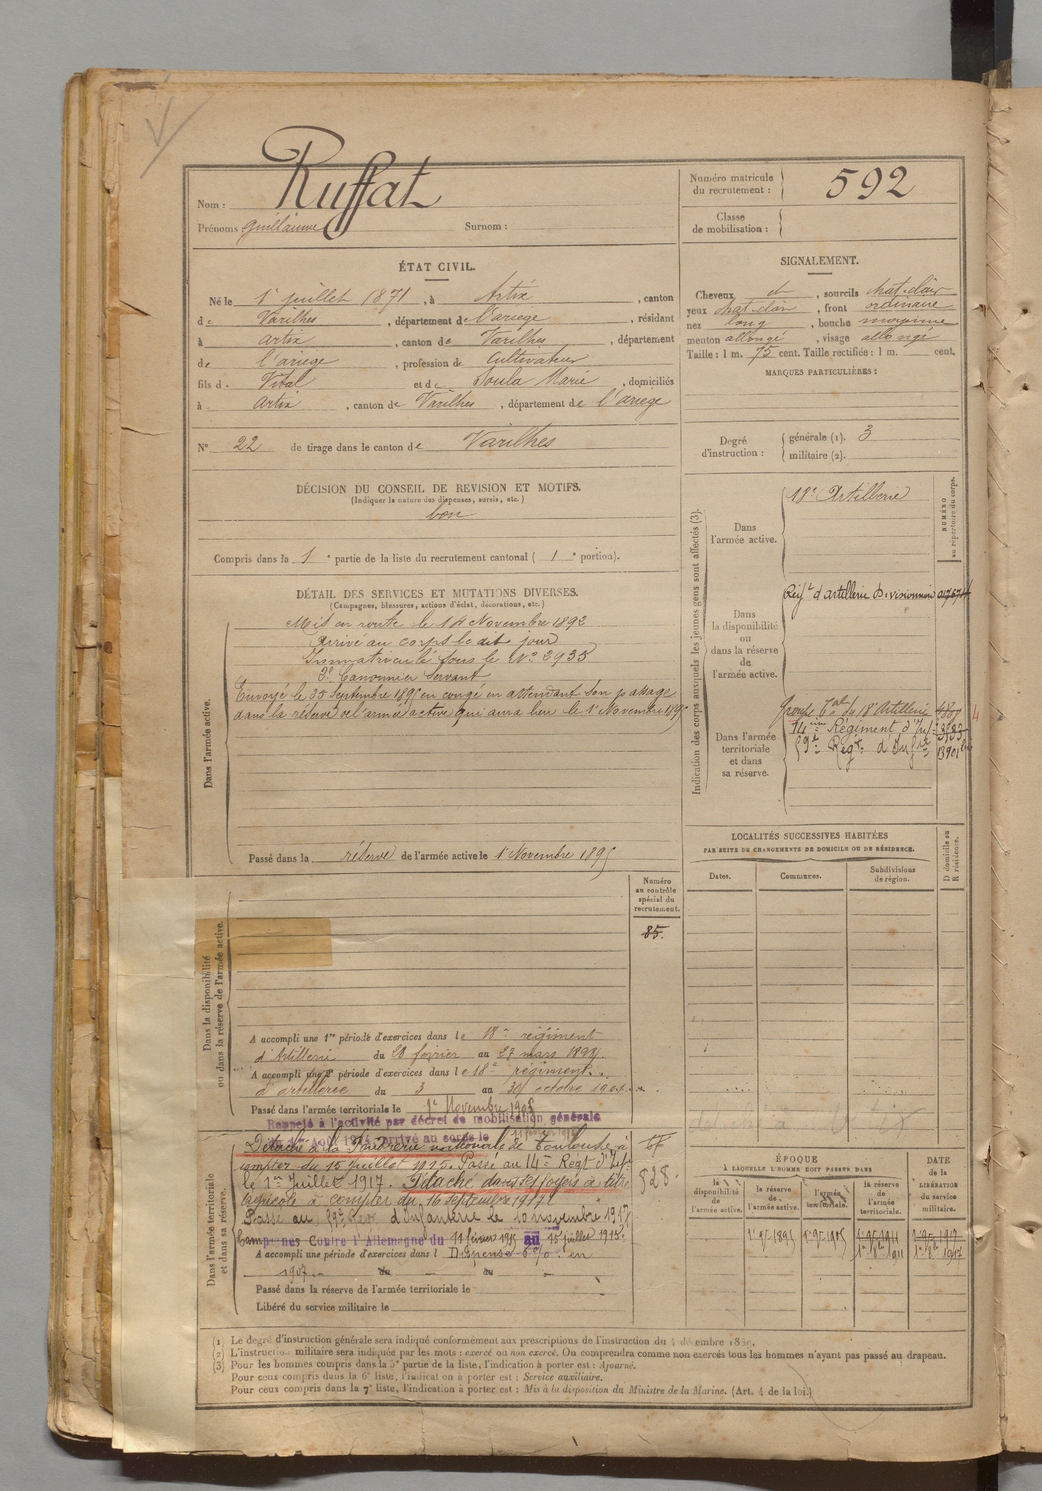 Nom : Ruffat
Prénoms Guillaume Surnom :
Numéro matricule du recrutement : 592
Classe de mobilisation :
ÉTAT CIVIL.
Né le 1er juillet 1871, à Artix, canton
de Varilhes, département de l'ariege, résidant
à Artix, canton de Varilhes, département
de l'ariege, profession de Cultivateur
fils de Vital et de Soula Marie, domiciliés
à Artix, canton de Varilhes, département de l'ariege
N° 22 de tirage dans le canton de Varilhes
DÉCISION DU CONSEIL DE REVISION ET MOTIFS.
(Indiquer la nature des dispenses, sursis, etc.)
bon
Compris dans la 1e partie de la liste du recrutement cantonal (1e portion).
DÉTAIL DES SERVICES ET MUTATIONS DIVERSES.
(Campagnes, blessures, actions d'éclat, décorations, etc.)
Dans l'armée active.
Mis en route le 14 Novembre 1892
Arrivé au corps le dit jour
Immatriculé sous le N° 3935
2e Canonnier Servant
Envoyé le 25 Septembre 1895 en congé en attendant son passage
dans la réserve de l'armée active qui aura lieu le 1er Novembre 1895
Passé dans la réserve de l'armée active le 1er Novembre 1895
Numéro au contrôle spécial du recrutement.
85.
Dans la disponibilité ou dans la réserve de l'armée active.
A accompli une 1re période d'exercices dans le 18me régiment
d'Artillerie du 28 février au 27 mars 1899.
A accompli une 2e période d'exercices dans le 18e régiment
d'artillerie du 3 au 30 octobre
Passé dans l'armée territoriale le 1er Novembre 1905
Rappelé à l'activité par décret de mobilisation générale
arrivé au corps le
Dans l'armée territoriale et dans sa réserve.
Détaché à la Poudrerie nationale de Toulouse à
compter du 15 juillet 1915. Passé au 14me Regt d'Infie
le 1er Juillet 1917. Détaché dans ses foyers à titre
agricole à compter du 16 septembre 1917.
Passé au 59e Reg d'Infanterie le 10 novembre 1917
Campagnes Contre l'Allemagne du 11 février 1915 au 15 juillet 1915.
A accompli une période d'exercices dans l Dispense en
1907 du au
828
Passé dans la réserve de l'armée territoriale le
Libéré du service militaire le
SIGNALEMENT.
Cheveux et, sourcils chat. clair
yeux chat. clair, front ordinaire
nez long, bouche moyenne
menton allongé, visage allongé
Taille : 1 m. 75 cent. Taille rectifiée : 1 m. cent.
MARQUES PARTICULIÈRES :
Degré d'instruction : générale (1). 3
militaire (2).
Indication des corps auxquels les jeunes gens sont affectés (3).
NUMÉRO au répertoire du corps.
Dans l'armée active.
18e Artillerie
Dans la disponibilité ou dans la réserve de l'armée active.
Regt d'artillerie Divisionnaire
Dans l'armée territoriale et dans sa réserve.
Groupe Tal du 18e Artillerie
14ème Régiment d'Inf.
59e Regt d'Infie
4
LOCALITÉS SUCCESSIVES HABITÉES
PAR SUITE DE CHANGEMENTS DE DOMICILE OU DE RÉSIDENCE.
Dates. Communes. Subdivisions de région. D domicile ou R résidence.
ÉPOQUE
À LAQUELLE L'HOMME DOIT PASSER DANS
DATE de la LIBÉRATION du service militaire.
la disponibilité de l'armée active. la réserve de l'armée active. l'armée territoriale. la réserve de l'armée territoriale.
1er 9bre 1895 1er 9bre 1905 1er 9bre 1911 1er 9bre 1917
1er 8bre 1911 1er 8bre 1917
(1) Le degré d'instruction générale sera indiqué conformément aux prescriptions de l'instruction du
(2) L'instruction militaire sera indiquée par les mots : exercé ou non exercé. On comprendra comme non exercés tous les hommes n'ayant pas passé au drapeau.
(3) Pour les hommes compris dans la 5e partie de la liste, l'indication à porter est : Ajourné.
Pour ceux compris dans la 6e liste, l'indication à porter est : Service auxiliaire.
Pour ceux compris dans la 7e liste, l'indication à porter est : Mis à la disposition du Ministre de la Marine. (Art. 4 de la loi.)